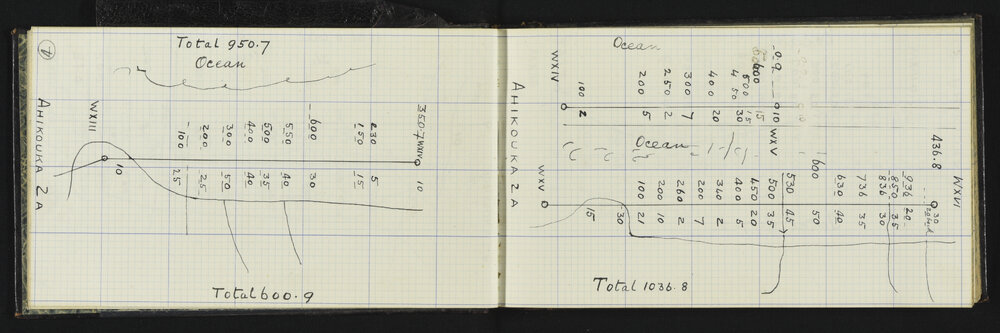 Total 950.7
Ocean
AHIKOUKA 2A
WXIII
10
100
200
300
400
500
550
600
150
230
350.7 WXIV
10
25
25
50
40
35
40
30
15
5
10
Total 600.9
Ocean
AHIKOUKA 2A
WXIV
100
200
250
300
400
450
500
600
2
5
2
7
20
30
15
15
10
WXV
Ocean
WXV
100
200
260
200
340
400
450
500
530
600
630
736
836
850
936
436.8
WXVI
21
10
2
7
2
5
20
35
45
50
40
35
30
35
20
30
15
30
Total 1036.8